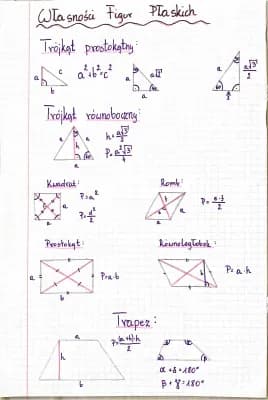 Własności Figur Płaskich
Trójkąt prostokątny:
a c b
a²+b²=c²
a a√2 a
a a√3/2 60 a/2
Trójkąt równoboczny:
a a h a 60
h=a√3/2
P=a²√3/4
Kwadrat:
a a
P=a²
P=d²/2
Romb:
a
Prostokąt:
a a b
P=a·b
Równoległobok:
h a
P=a·h
Trapez:
a h b
P=(a+b)·h/2
α+δ=180°
β+γ=180°